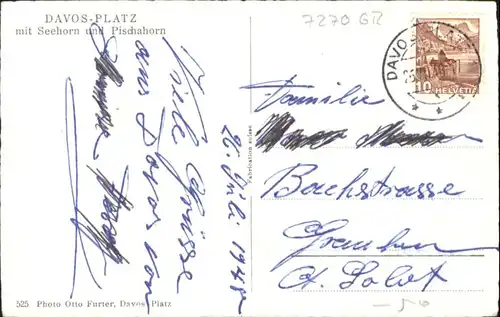 DAVOS-PLATZ
mit Seehorn und Pischahorn
7270 GR
DAVOS
10
HELVETIA
Viele Grüsse
aus Davos von
26. Juli 1948
Familie
Bachstrasse
Grenchen
Kt. Solot
Fabrication suisse
525 Photo Otto Furter, Davos Platz